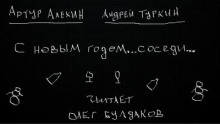 Артур Алехин Андрей Туркин
С новым годем...соседи...
читает
Олег Булдаков